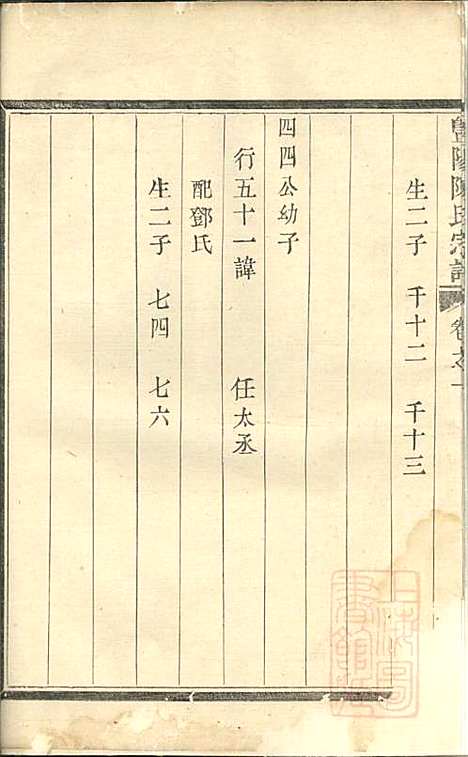 陳氏宗譜
卷之一
生二子 千十二 千十三
四四公幼子
行五十一諱 任太丞
配鄧氏
生二子 七四 七六
上海圖書館藏